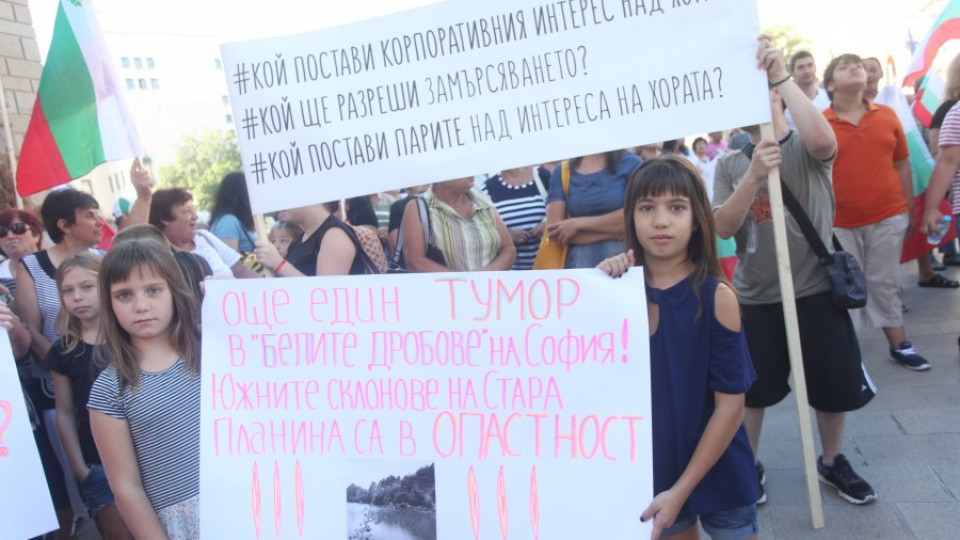 #КОЙ ПОСТАВИ КОРПОРАТИВНИЯ ИНТЕРЕС НАД
#КОЙ ЩЕ РАЗРЕШИ ЗАМЪРСЯВАНЕТО?
#КОЙ ПОСТАВИ ПАРИТЕ НАД ИНТЕРЕСА НА ХОРАТА?
още един ТУМОР
в "БЕЛИТЕ ДРОБОВЕ" на София!
Южните склонове на Стара
Планина са в ОПАСТНОСТ
!!!!!
?